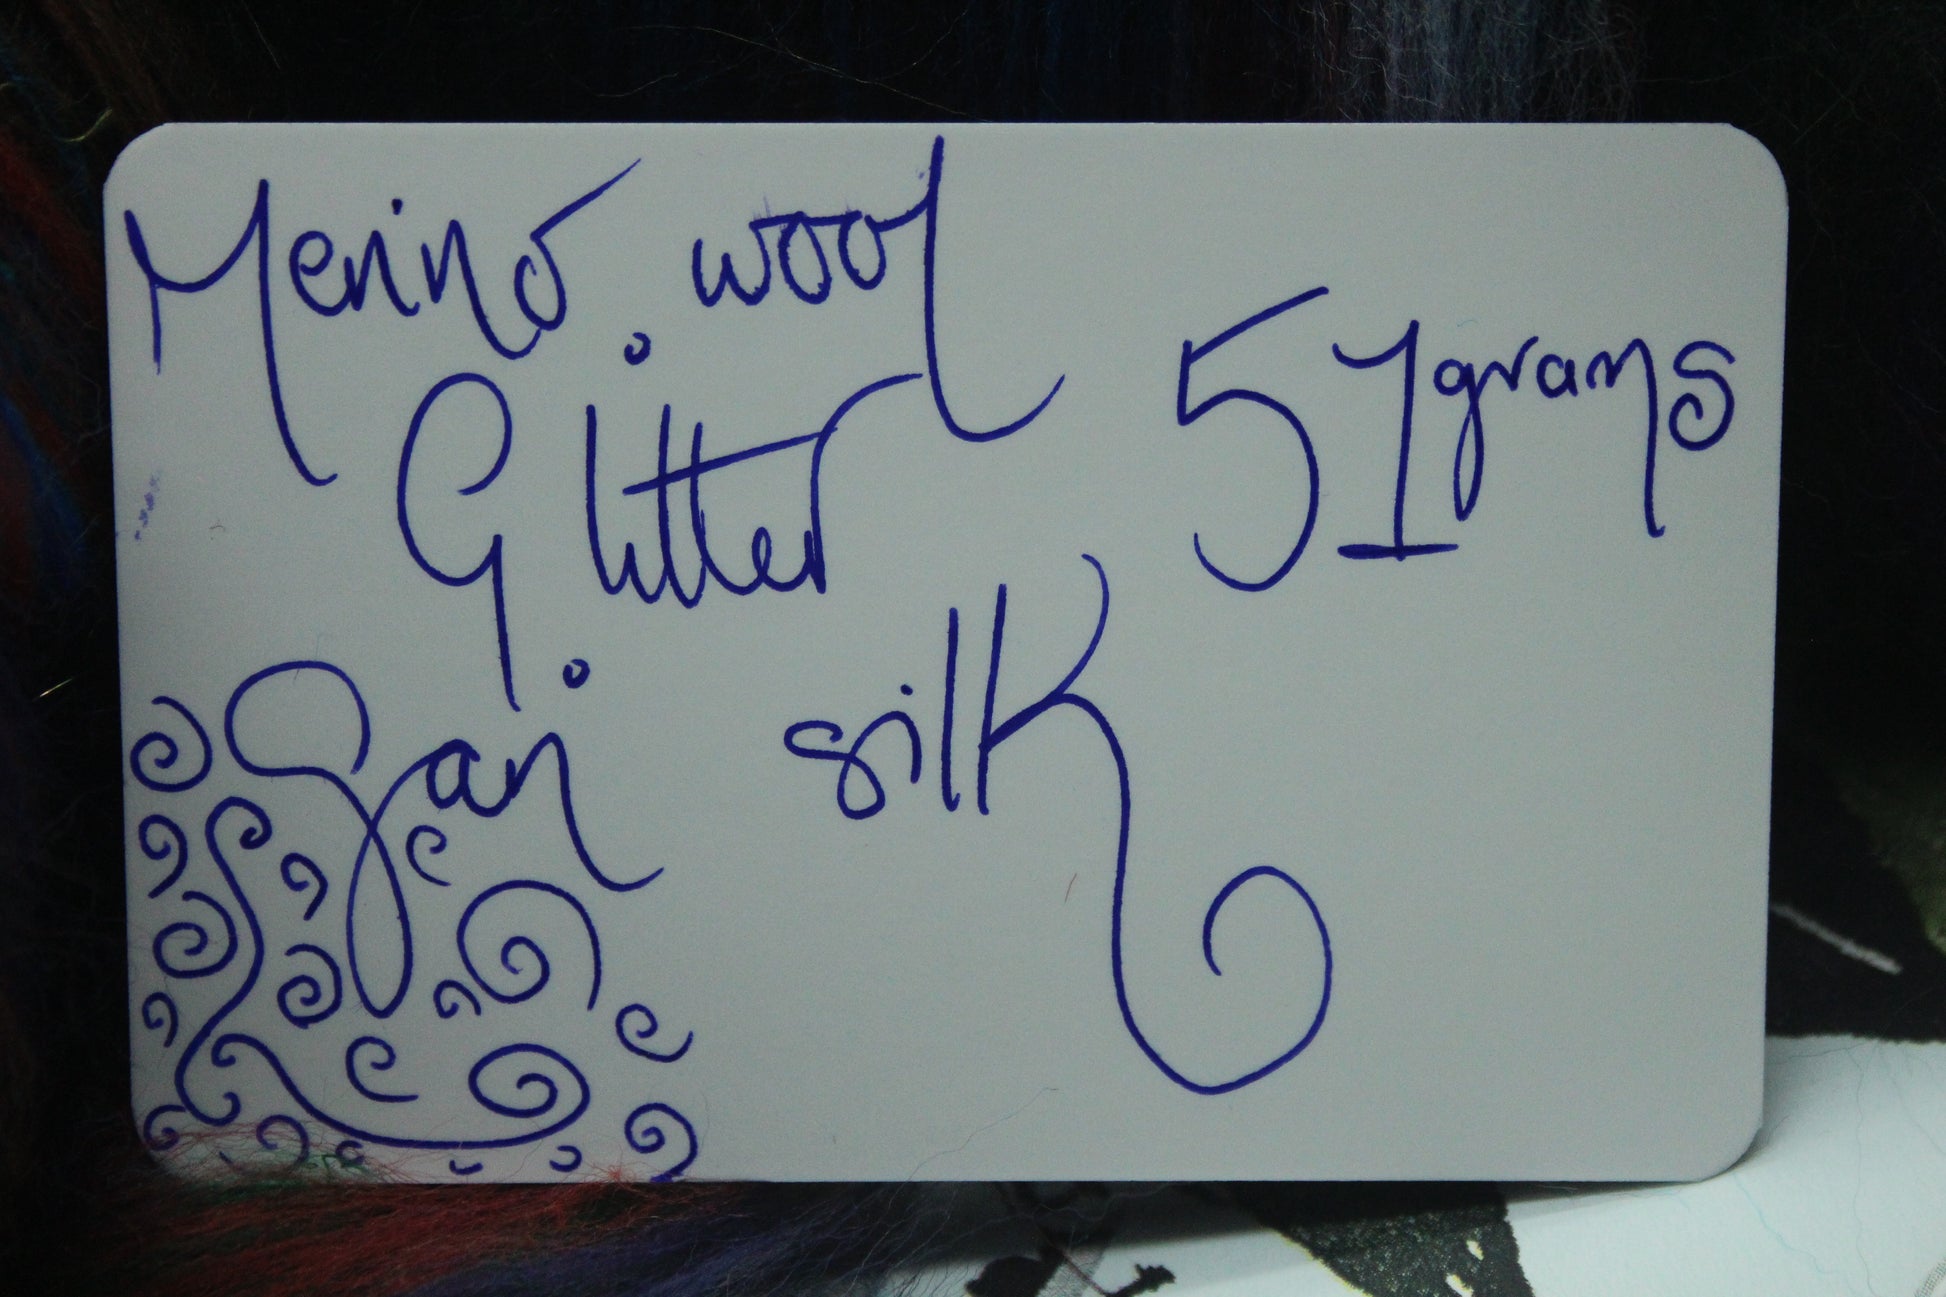 Merino wool
Glitter
51grams
Sari silk